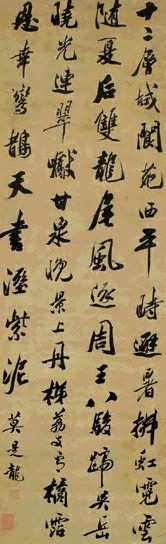 十二層城閬苑西平時避暑拂虹霓雲
隨夏后雙龍尾風逐周王八駿蹄吳岳
曉光連翠巘甘泉晚景上丹梯荔支盧橘霑
恩華鸞鵲天書溼紫泥
莫是龍